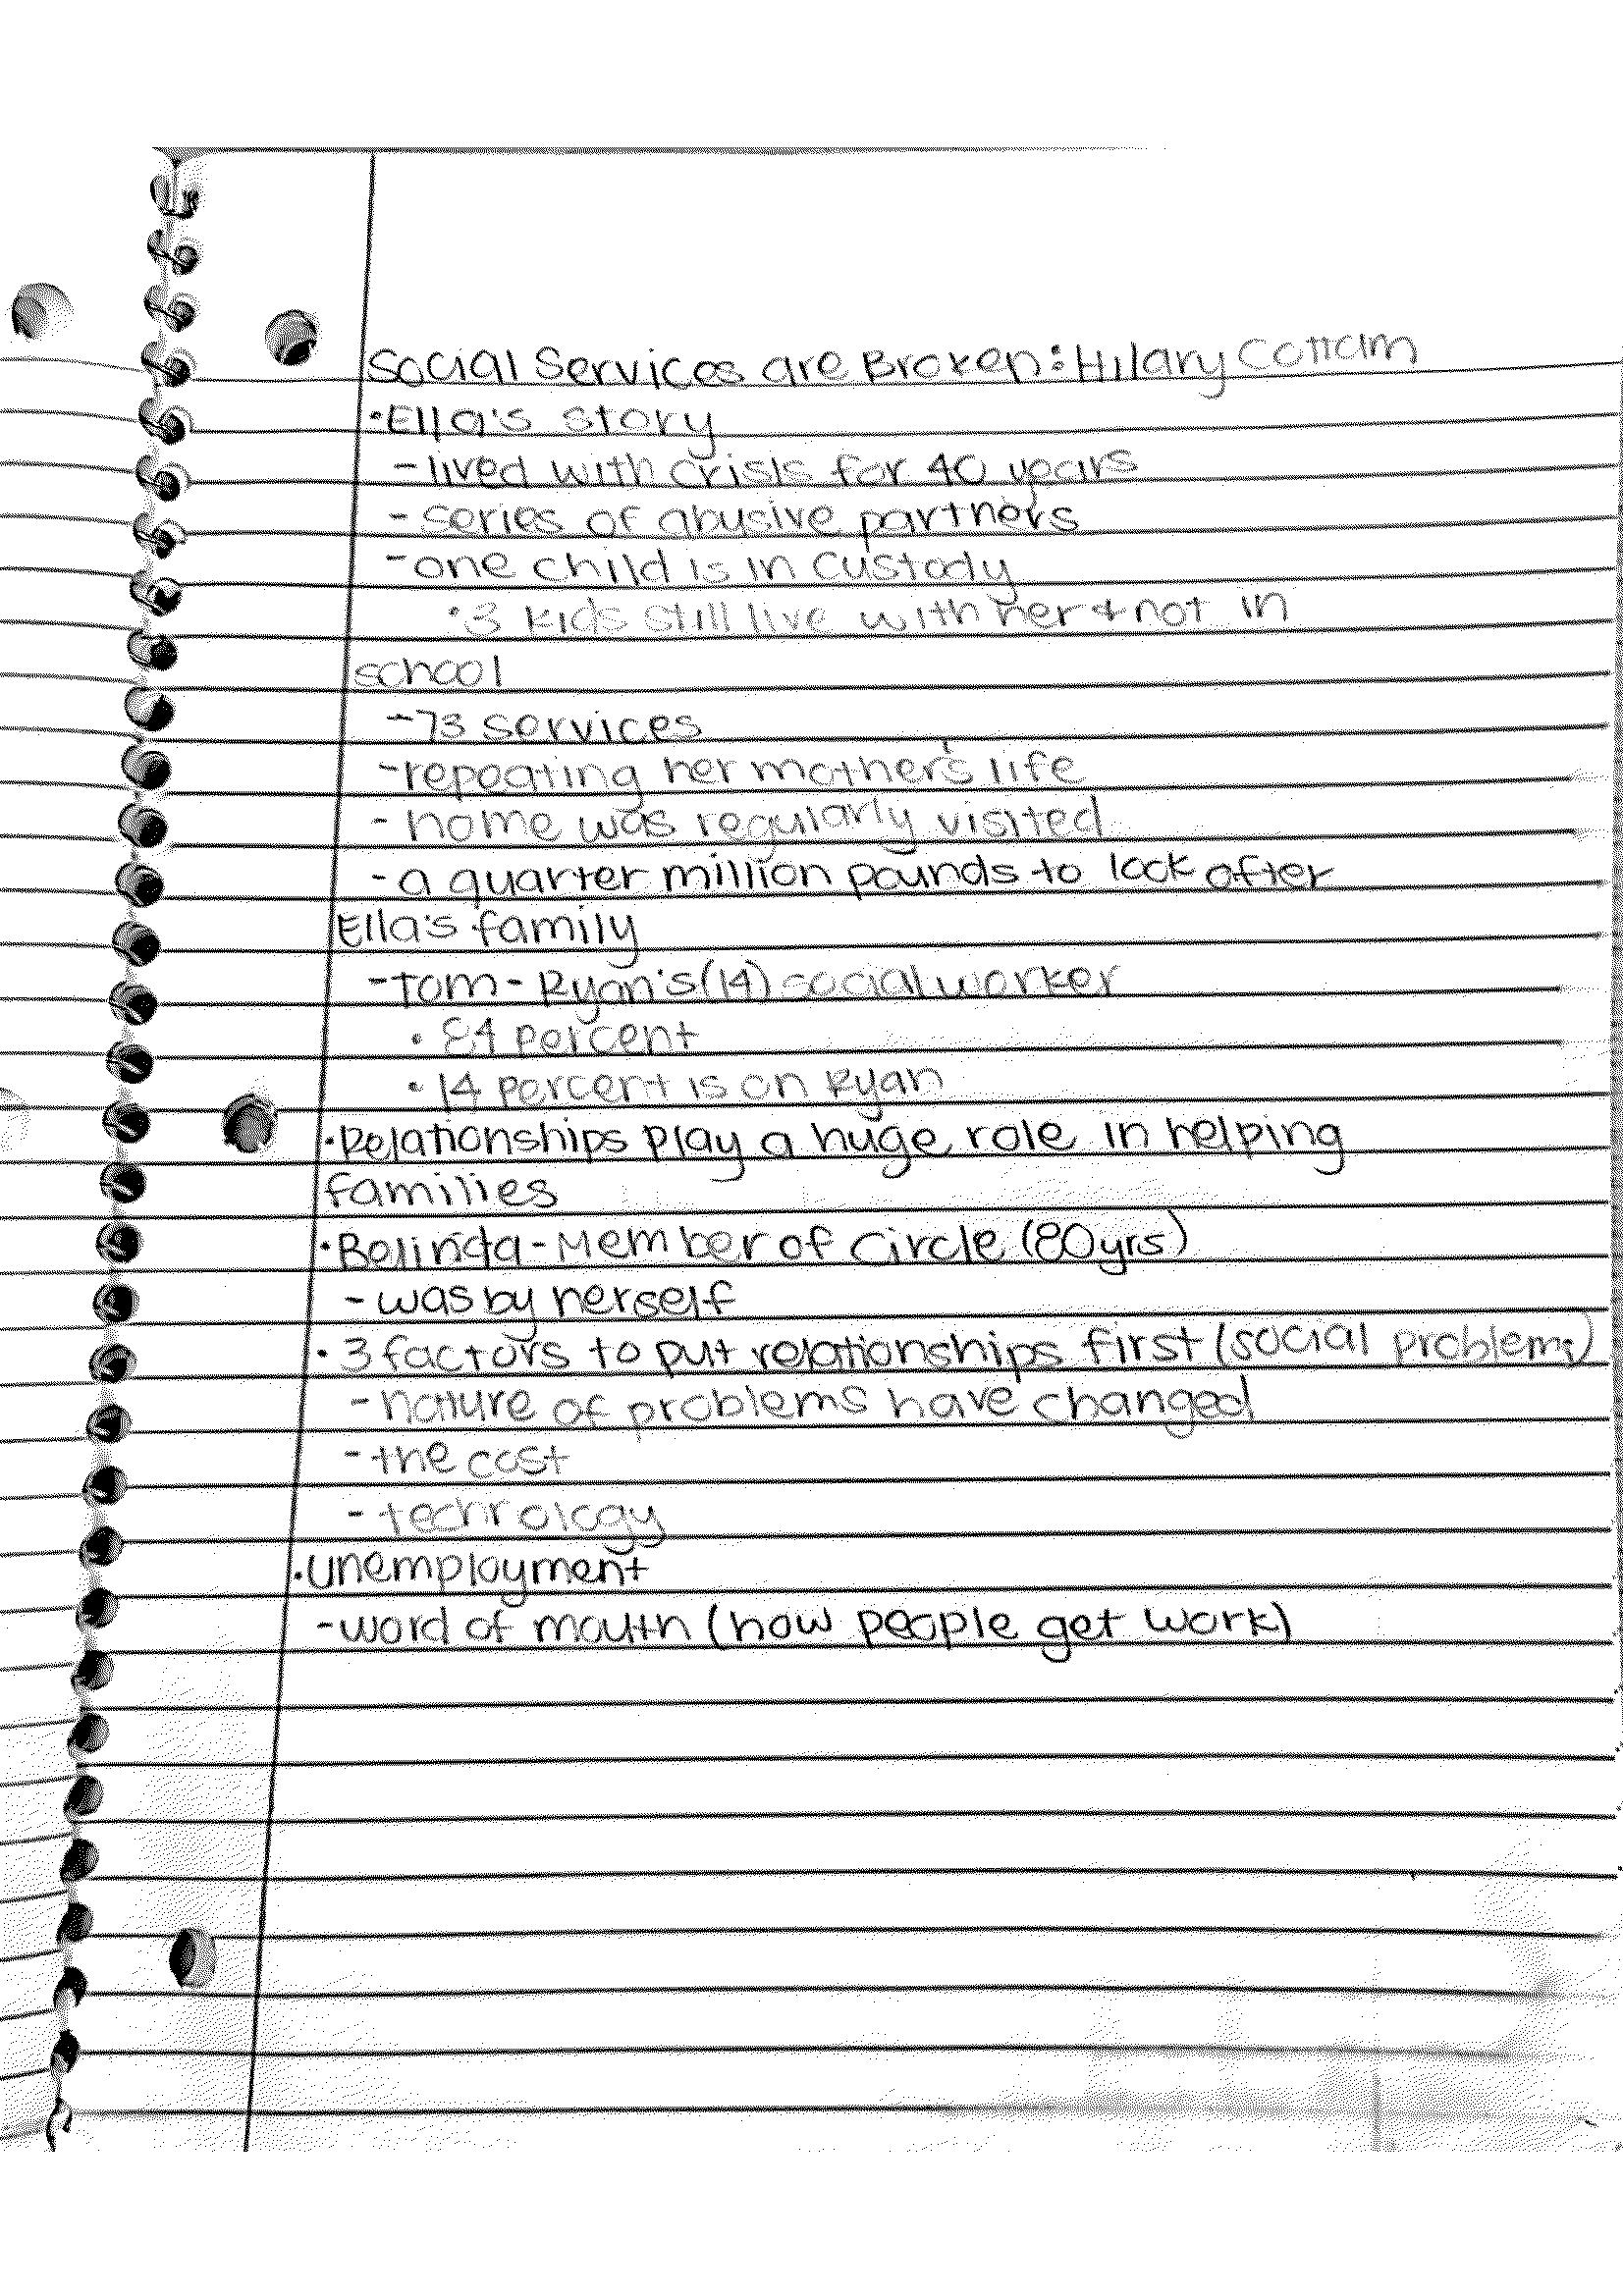 Social Services are Broken: Hilary Cottam
•Ella's story
-lived with crisis for 40 years
- series of abusive partners
-one child is in custody
•3 kids still live with her & not in
school
-73 services
-repeating her mother's life
- home was regularly visited
- a quarter million pounds to look after
Ella's family
-Tom - Ryan's (14) social worker
• 84 percent
• 14 percent is on Ryan
•Relationships play a huge role in helping
families
•Belinda - Member of Circle (80yrs)
- was by herself
• 3 factors to put relationships first (social problems)
- nature of problems have changed
- the cost
- technology
•unemployment
-word of mouth (how people get work)